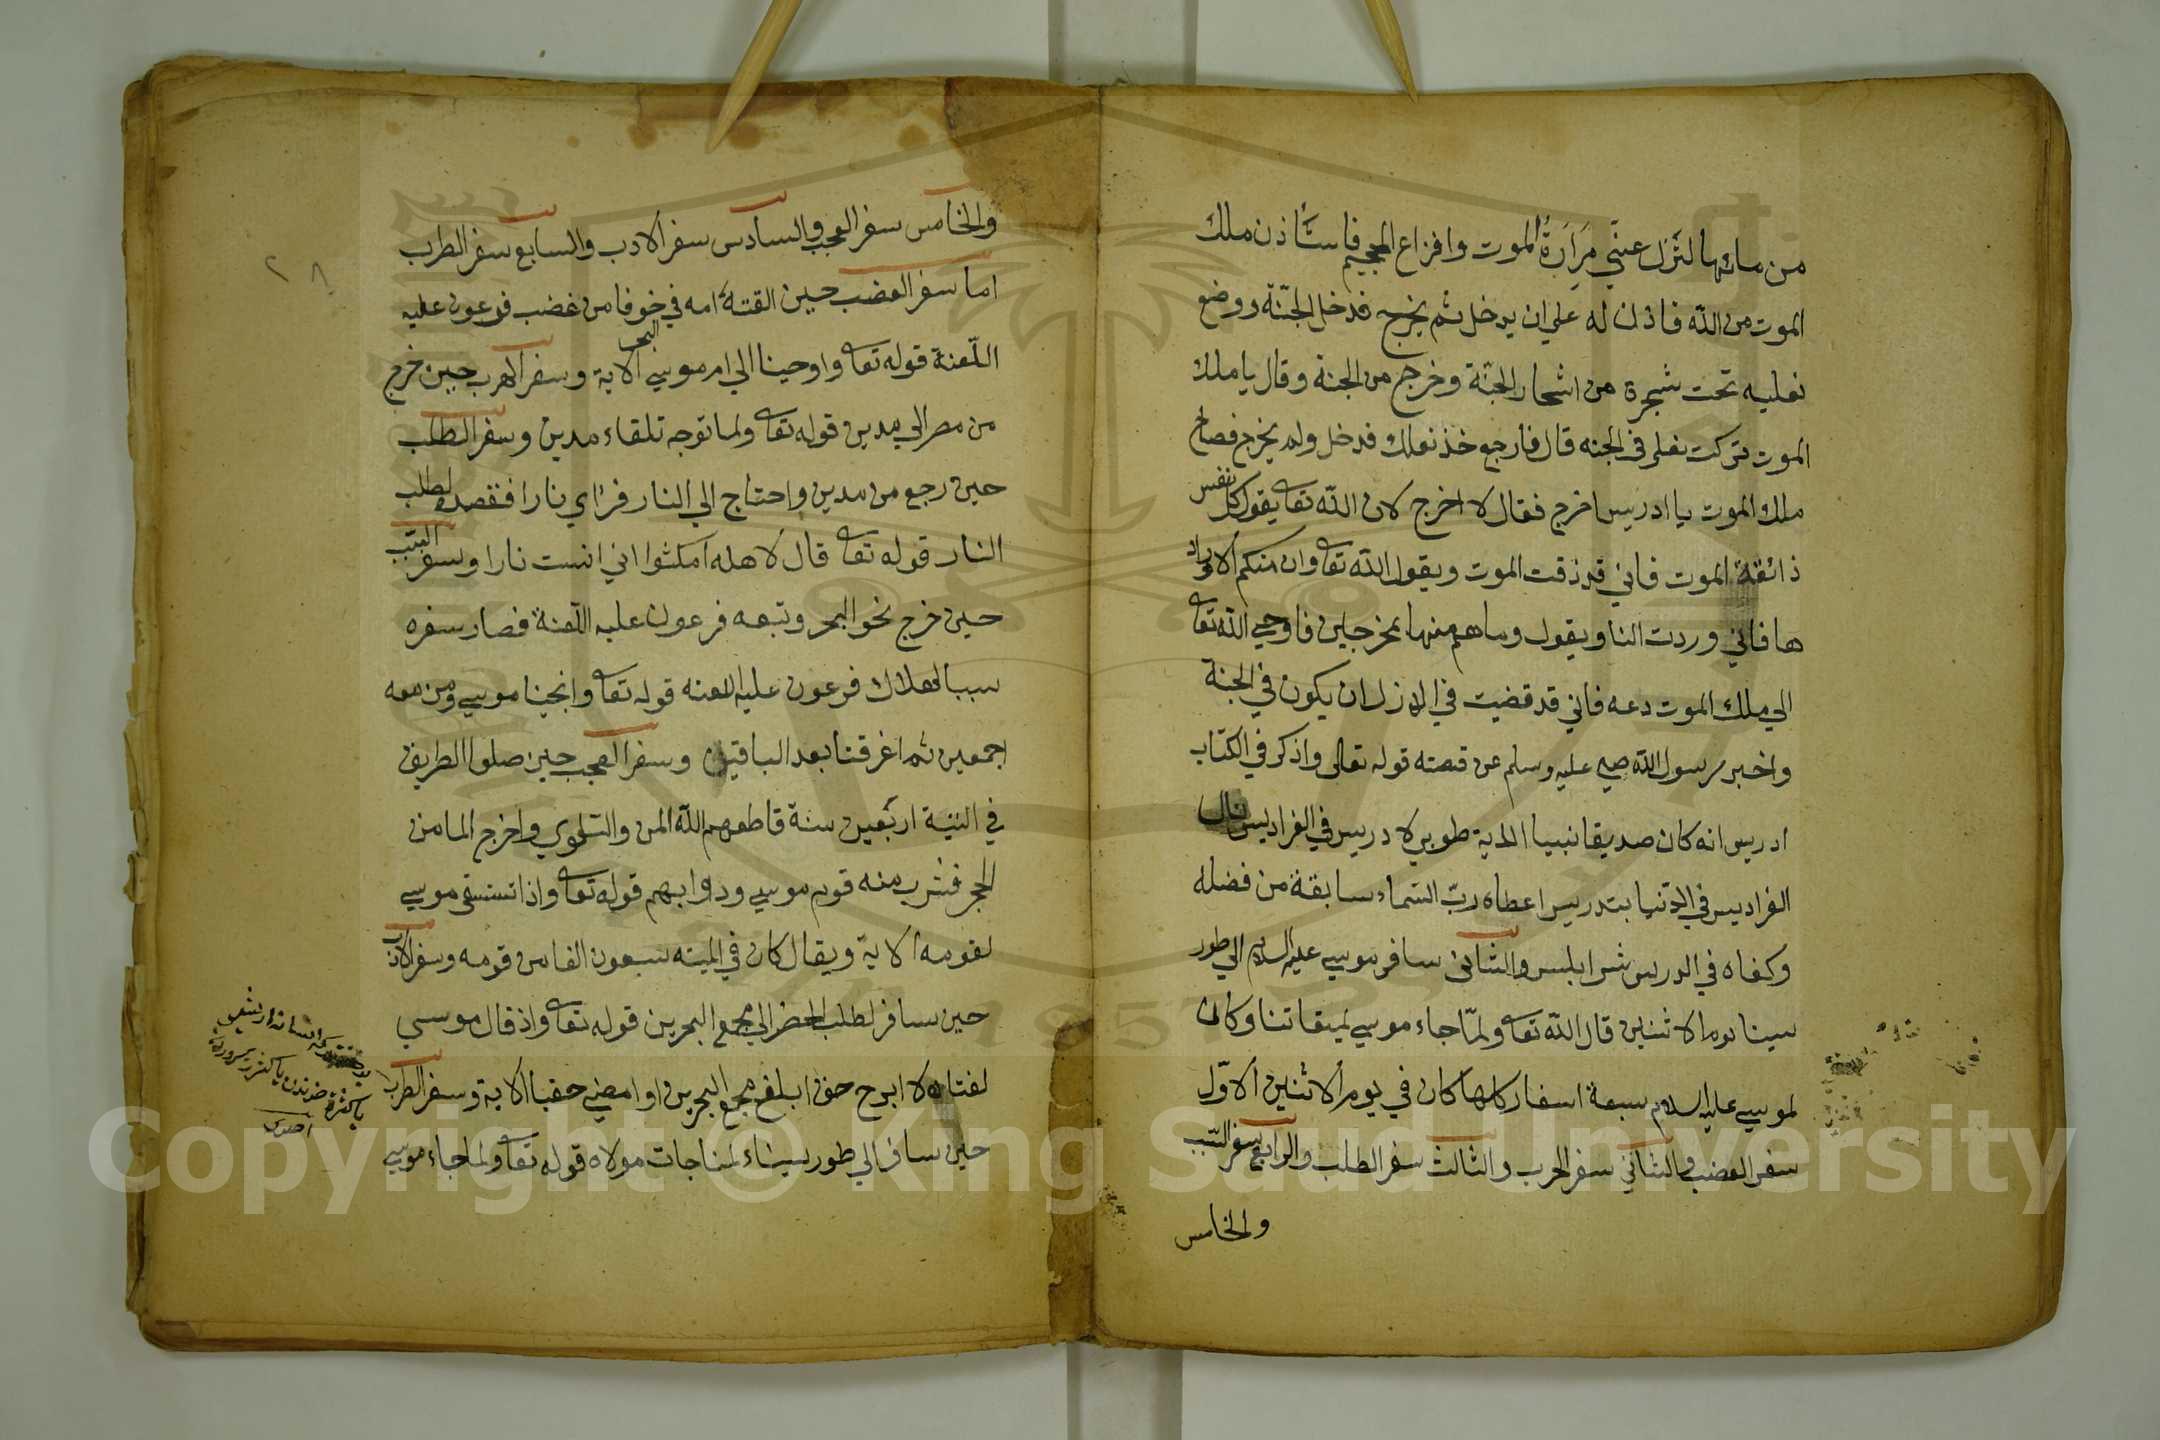 من مائها لتزل عني مَرَارَةُ الموت وافزاع الجحيم فاستأذن ملك
الموت من الله فاذن له علي ان يدخل ثم يخرج فدخل الجنّة ووضع
نعليه تحت شجرة من اشجار الجنّة وخرج من الجنة وقال يا ملك
الموت تركت نعلى في الجنه قال فارجع خذ نعلك فدخل ولم يخرج فصاح
ملك الموت يا ادريس اخرج فقال لا اخرج لان الله تعا يقول كل نفس
ذائقة الموت فاني قد ذقت الموت ويقول الله تعا وان منكم الا وارد
ها فاني وردت النا ويقول وما هم منها بمخرجين فاوحي الله تعا
الي ملك الموت دعه فاني قد قضيت في الازل ان يكون في الجنة
واخبر رسول الله صلي عليه وسلم عن قصته قوله تعالى واذكر في الكتاب
ادريس انه كان صديقا نبيا الاية طوبي لادريس في الفراديس نال
الفراديس في الدّنيا بتدريس اعطاه ربّ السّماء سابقة من فضله
وكفاه في الدريس شر ابليس والثاني سافر موسي عليه السلام الي طور
سينا يوم الاثنين قال الله تعا ولمّا جاء موسي لميقاتنا وكان
لموسي عليه السلام سبعة اسفار كلها كان في يوم الاثنين الاوّل
سفر الغضب والثاني سفر الحرب والثالث سفر الطلب والرابع سفر السبب
والخامس
والخامس سفر العجب والسادس سفر الادب والسابع سفر الطرب
اما سفر الغضب حين القته امه في خوفا من غضب فرعون عليه
البحر
اللّعنة قوله تعا واوحينا الي ام موسي الاية وسفر الهرب حين خرج
من مصر الي مدين قوله تعا ولما توجه تلقاء مدين وسفر الطلب
حين رجع من مدين واحتاج الي النار فراي نارا فقصده لطلب
النار قوله تعا قال لاهله امكثوا اني انست نارا وسفر السبب
حين خرج نحو البحر وتبعه فرعون عليه اللّعنة فصار سفره
سببا لهلاك فرعون عليه اللعنه قوله تعا وانجينا موسي ومن معه
اجمعين ثم اغرقنا بعد الباقين وسفر العجب حين صلوا الطريق
في التيّة اربعين سنة فاطعهم الله المن والسّلوي واخرج الما من
الحجر فشرب منه قوم موسي ودوابهم قوله تعا واذا تستسقى موسي
لقومه الاية ويقال كان في الميته سبعون الفا من قومه وسفر الادب
حين سافر لطلب الخضر الي مجمع البحرين قوله تعا واذ قال موسي
لفتاه لا ابرح حتى ابلغ مجمع البحرين او امضي حقبا الاية وسفر الطرب
حين سافر الي طور سيناء لمناجات مولاه قوله تعا ولما جاء موسي